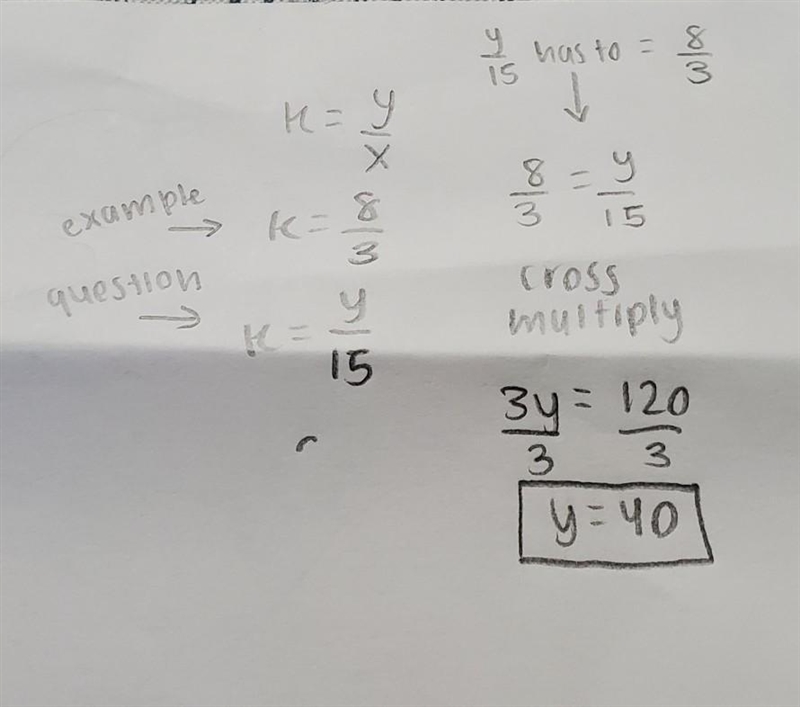 K = y/x
example → K = 8/3
question → K = y/15
y/15 has to = 8/3
↓
8/3 = y/15
cross
multiply
3y/3 = 120/3
y = 40